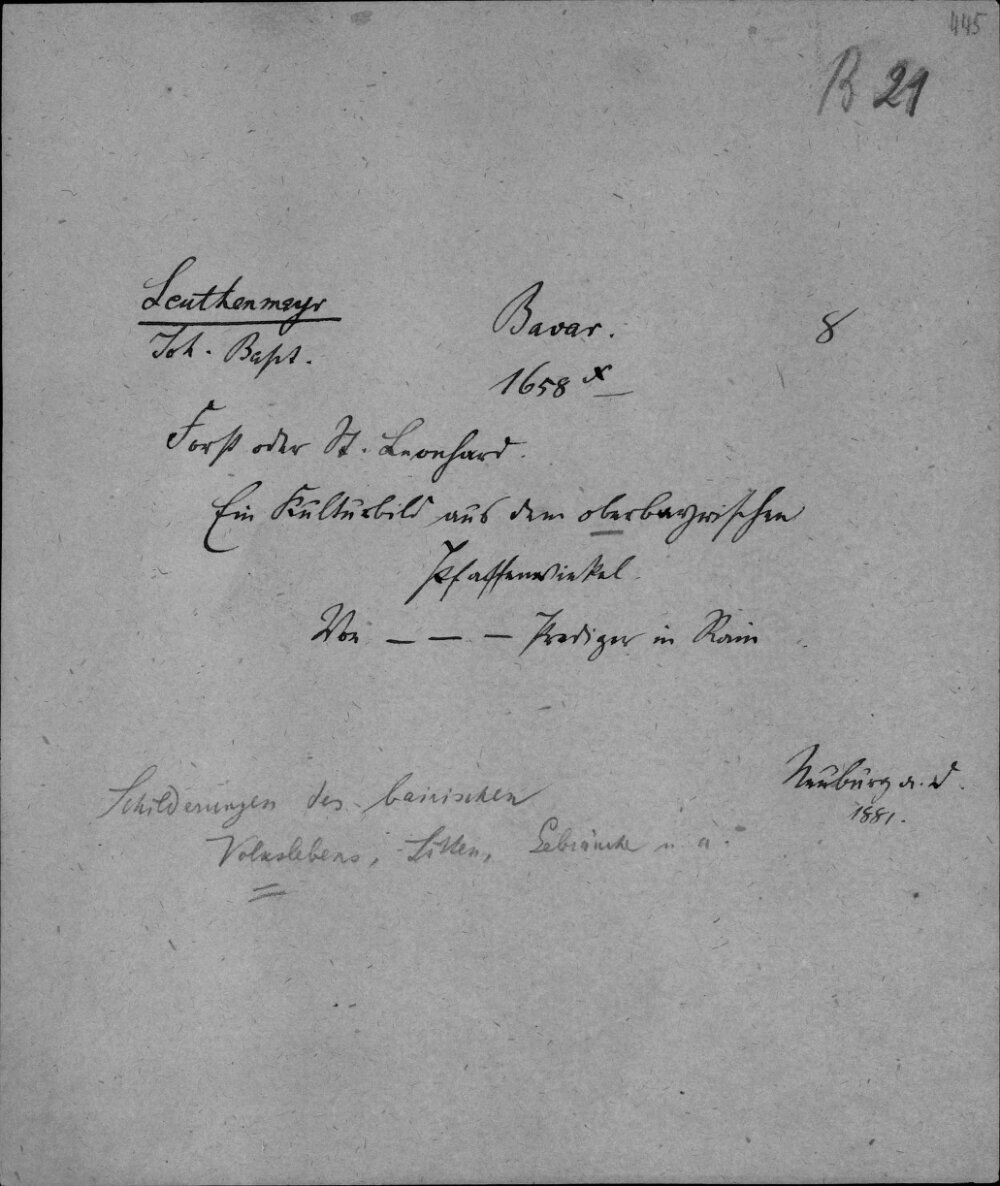 445
B 21
Leuthenmayr
Joh. Bapt.
Bavar.
8
1658 x
Forst oder St. Leonhard.
Ein Kulturbild aus dem oberbayrischen
Pfaffenwinkel.
Von — — — Prediger in Rain
Neuburg a. D.
1881.
Schilderungen des bairischen
Volkslebens, Sitten, Gebräuche u. a.